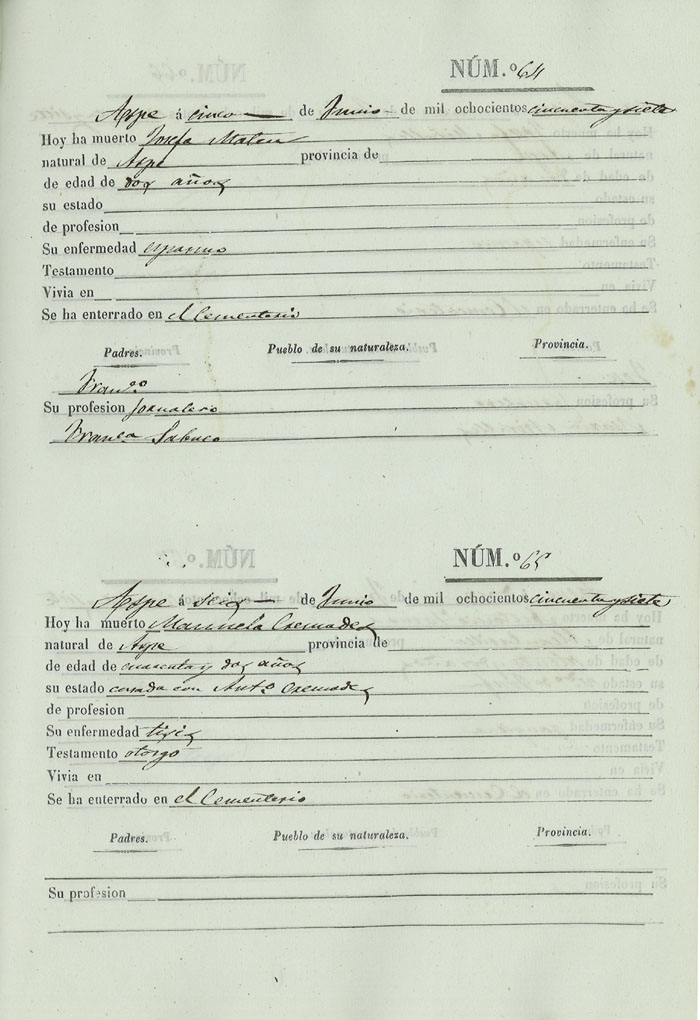 NÚM.º 64
Aspe á cinco de Junio de mil ochocientos cincuenta y siete
Hoy ha muerto Josefa Mateu
natural de Aspe provincia de
de edad de dos años
su estado
de profesion
Su enfermedad espasmo
Testamento
Vivia en
Se ha enterrado en el Cementerio
Padres. Pueblo de su naturaleza. Provincia.
Franco
Su profesion jornalero
Franca Sabuco
NÚM.º 65
Aspe á seis de Junio de mil ochocientos cincuenta y siete
Hoy ha muerto Manuela Cremades
natural de Aspe provincia de
de edad de cuarenta y dos años
su estado casada con Anto Cremades
de profesion
Su enfermedad tisis
Testamento otorgo
Vivia en
Se ha enterrado en el Cementerio
Padres. Pueblo de su naturaleza. Provincia.
Su profesion